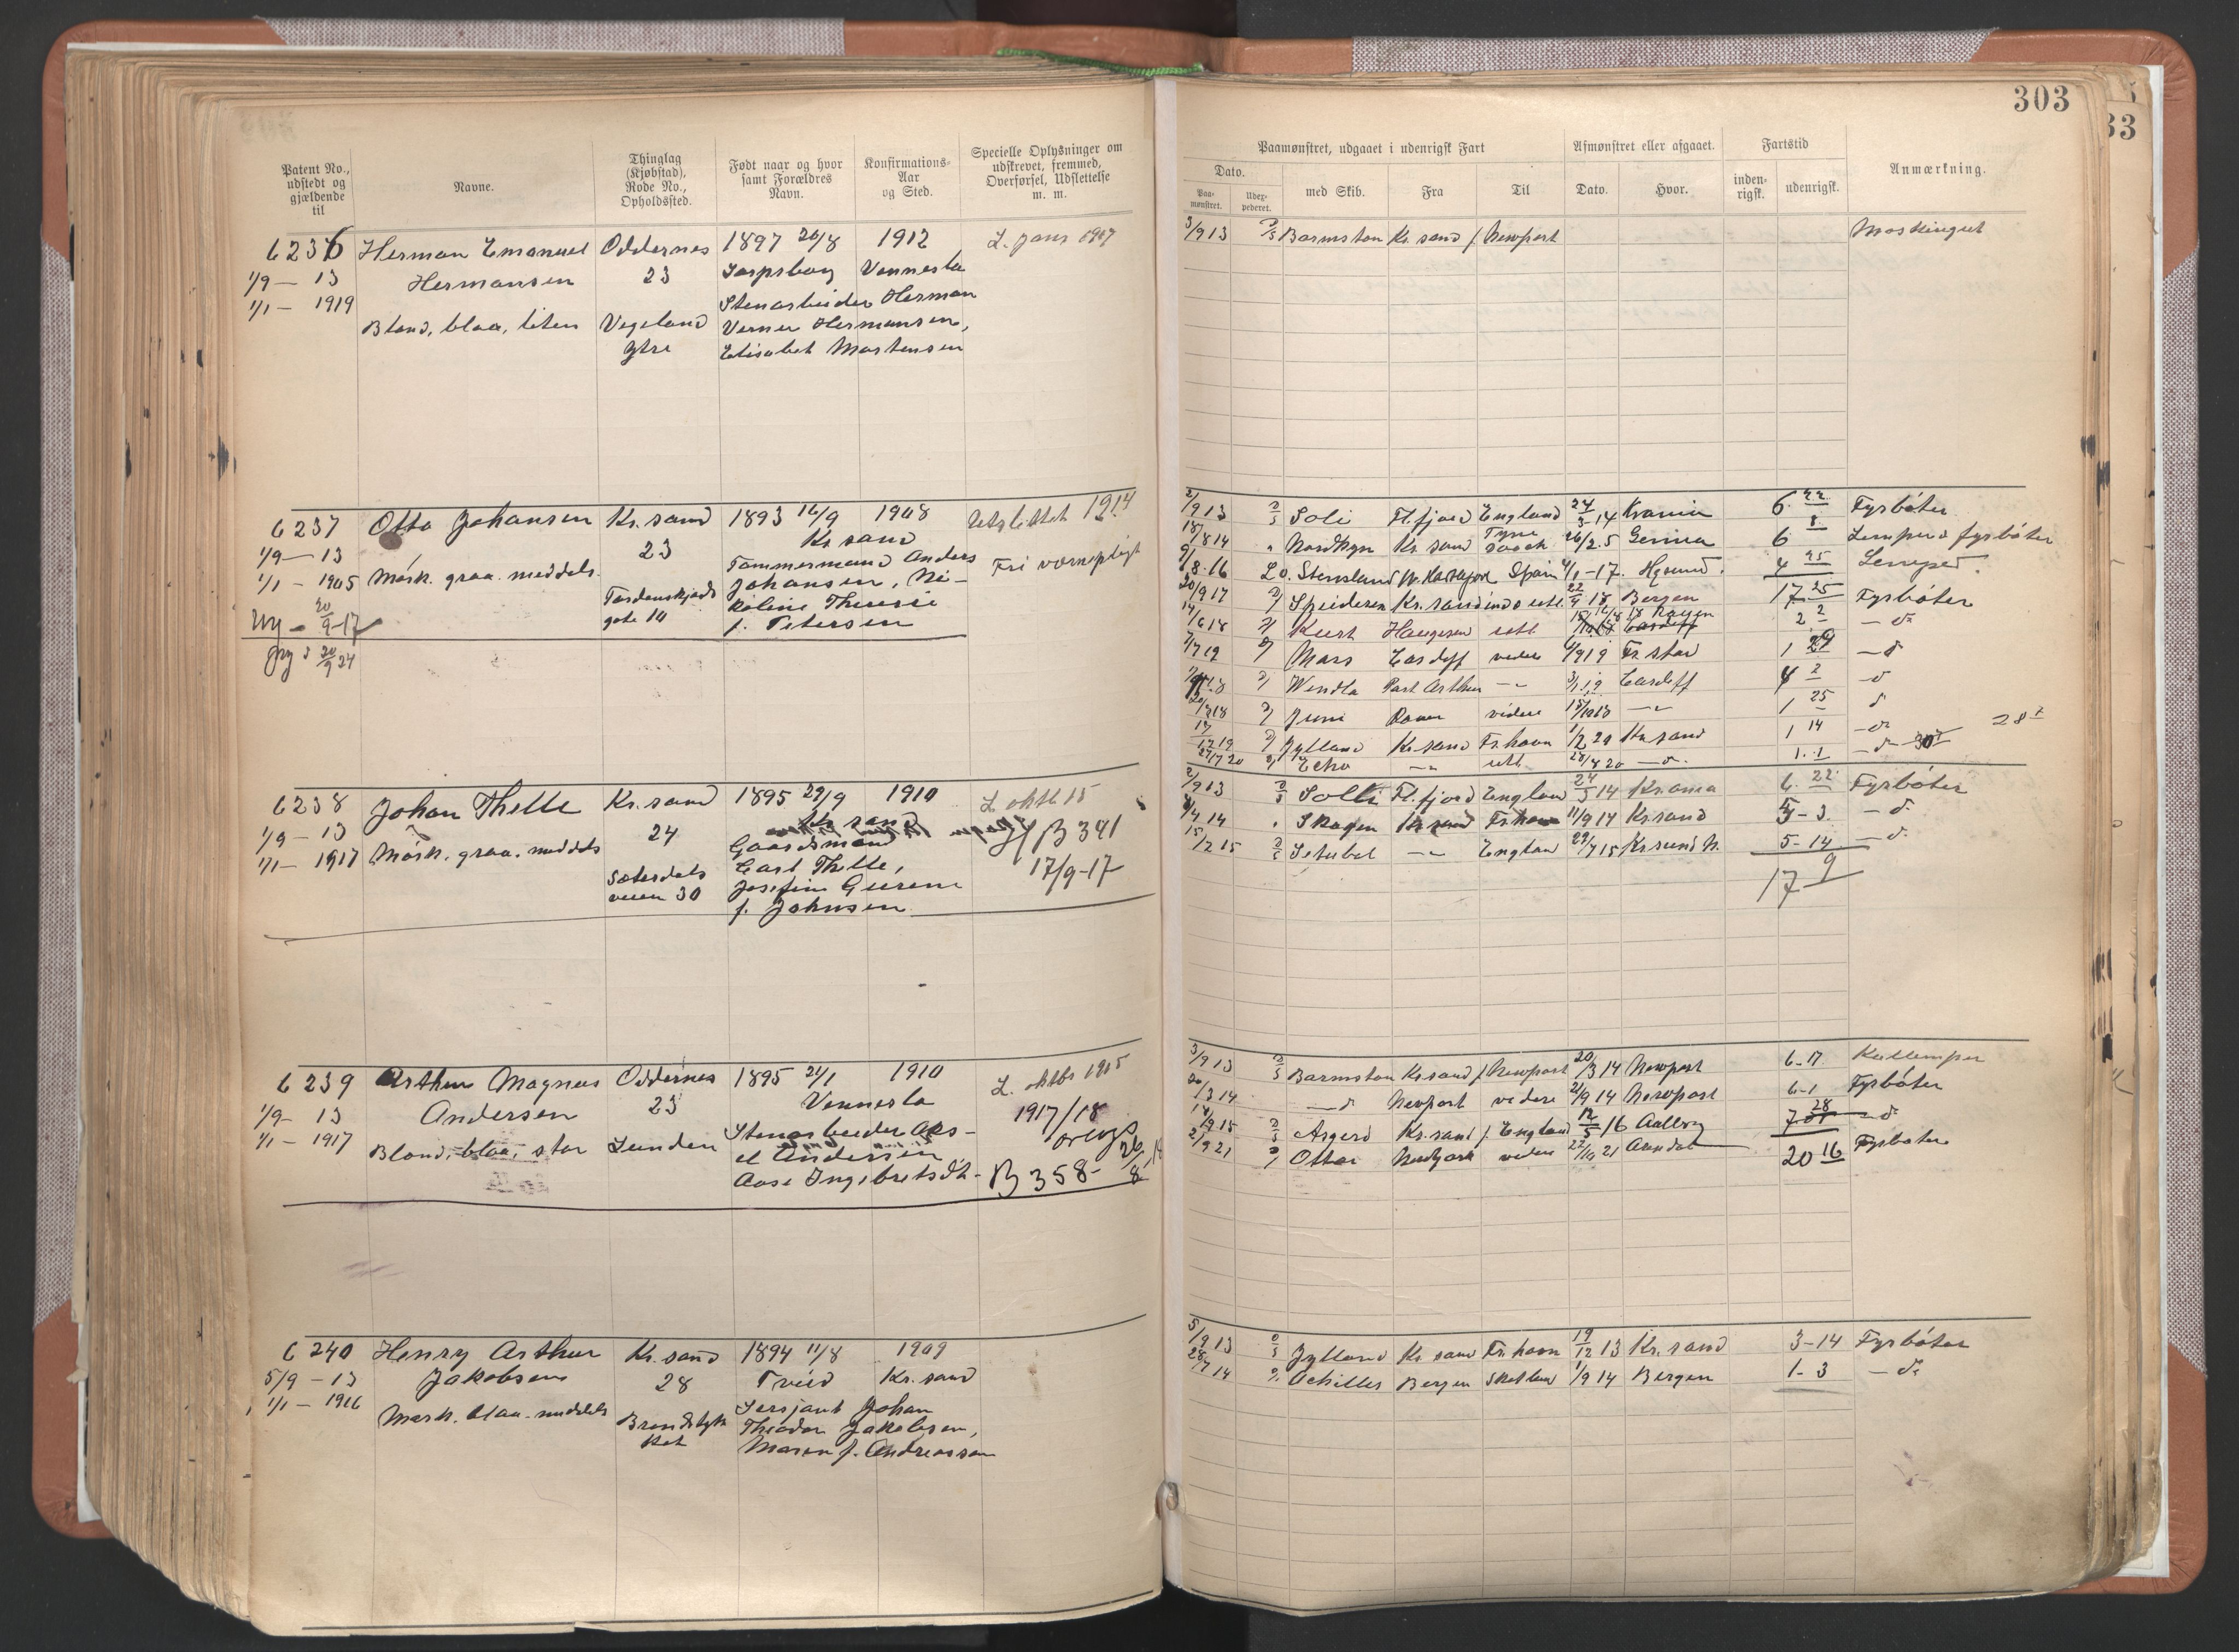 303
33
Patent No., udstedt og gjældende til
Navne.
Thinglag (Kjøbstad), Rode No., Opholdssted.
Født naar og hvor samt Forældres Navn.
Konfirmations-Aar og Sted.
Specielle Oplysninger om udskrevet, fremmed, Overførsel, Udslettelse m. m.
Paamønstret, udgaaet i udenrigsk Fart
Dato.
Paa-mønstret.
Udex-pederet.
med Skib.
Fra
Til
Afmønstret eller afgaaet.
Dato.
Hvor.
Fartstid
inden-rigsk.
udenrigsk.
Anmærkning.
6236 Herman Emanuel Oddernes 1897 20/8 1912 L. jans 1917
1/9 — 13 Hermansen 23 Sarpsborg Vennesla
1/1 — 1919 Stenarbeider Herman
Blond, blaa, liten Vegeland Verner Hermansen,
Ytre Elisabet Mortensen
3/9 13 Barmston Kr. sand / Newport
6237 Otto Johansen Kr. sand 1893 16/9 1908 Udslettet 1914
1/9 — 13 23 Kr sand
1/1 — 1905 Mörk. graa. meddels. Tømmermand Anders Fri værnepligt
Tordenskjolds Johansen, Ni-
Ny — 20/9-17 gate 14 koline Theresie
f. Petersen
Ny d 20/9 24
2/9 13 Soli Fl. fjord England 24/3-14 Kramir 6 22 Fyrböter
18/8 14 " Nordkyn Kr sand Tyne 26/2.5 Genua 6 8 Lemper o fyrböter
9/8-16 Stensland Spain 4/1-17. 4 25 Lemper.
20/9 17 Speideren Kr. sand 22/9 18 Bergen 17 25 Fyrböter
14/6 18 Kurt Haugesun utl Cardiff 2 2 — d
7/7 19 Mars Cardiff videre 6/9 19 Fr. stad 1 29 — d
Wendla Port Arthur — " 3/1 19 Cardiff 4 2 — d
Juni Rouen videre 15/10 18 — " 1 25 d
Jylland Kr. sand Fr. havn 1/2 20 Kr. sand 1 14 — d 28
27/7 20 Echo — " utl 28/8 20 — d. 1. 1 — d
6238 Johan Thelle Kr. sand 1895 29/9 1910 L. oktb 15
1/9 — 13 24 Kr sand B 391
1/1 — 1917 Mörk. graa. meddels Gaardsmand 17/9-17
Sætesdals Carl Thelle,
veien 30 Josefine
f. Johnsen
2/9 13 Solli Fl. fjord England 24/3 14 Kr.ama 6. 22 Fyrböter
4/4 14 " Skagen Kr sand Fr havn 11/9 14 Kr sand 5 - 3. — d.
15/2 15 Setubal — " England 29/7 15 Kr sund N. 5-14 — d.
17 9
6239 Arthur Magnus Oddernes 1895 21/1 1910 L. oktbr 1915
1/9 — 13 Andersen 23 Vennesla 1917/18
1/1 — 1917 Stenarbeider Aks-
Blond, blaa, stor Lunden el Andersen
Aase Ingebretsdt - B 358 - 26/8 18
3/9 13 Barmston Kr sand / Newport 20/3 14 Newport 6-17 Kullemper
20/3 14 — d Newport videre 21/9 14 Newport 6-1 Fyrböter
14/9 15 Asgerd Kr. sand / England 12/5 16 Aalborg 7 28 — d
2/9 21 Ottar videre 22/10 21 Arendal 20 16 Fyrböter
6240 Henry Arthur Kr. sand 1894 11/8 1909
5/9 — 13 Jakobsen 28 Tveid Kr. sand
1/1 — 1916 Sersjant Johan
Mörk. blaa. meddels Brondstyk Theodor Jakobsen,
ket Maren f. Andreassen
5/9 13 Jylland Kr sand Fr. havn 19/12 13 Kr. sand 3-14 Fyrböter
28/7 14 Achilles Bergen Skotland 1/9 14 Bergen 1-3 — d